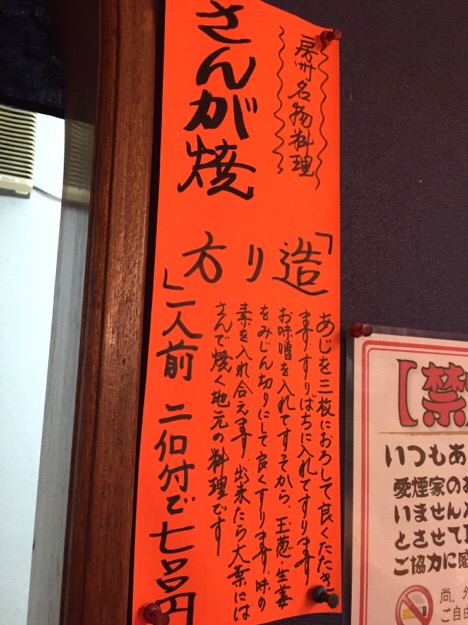 房州名物料理
さんが焼
「造り方
あじを三枚におろして良くたたき
ます。すりばちに入れてすります
お味噌を入れてすそから、玉葱・生姜
をみじん切りにして良くすります、味の
素を入れ合えます。出来たら大葉には
さんで焼く地元の料理です
」一人前 二ヶ付で七百円
【禁
いつもあ
愛煙家の
いません
とさせて
ご協力に感
尚、
ご自